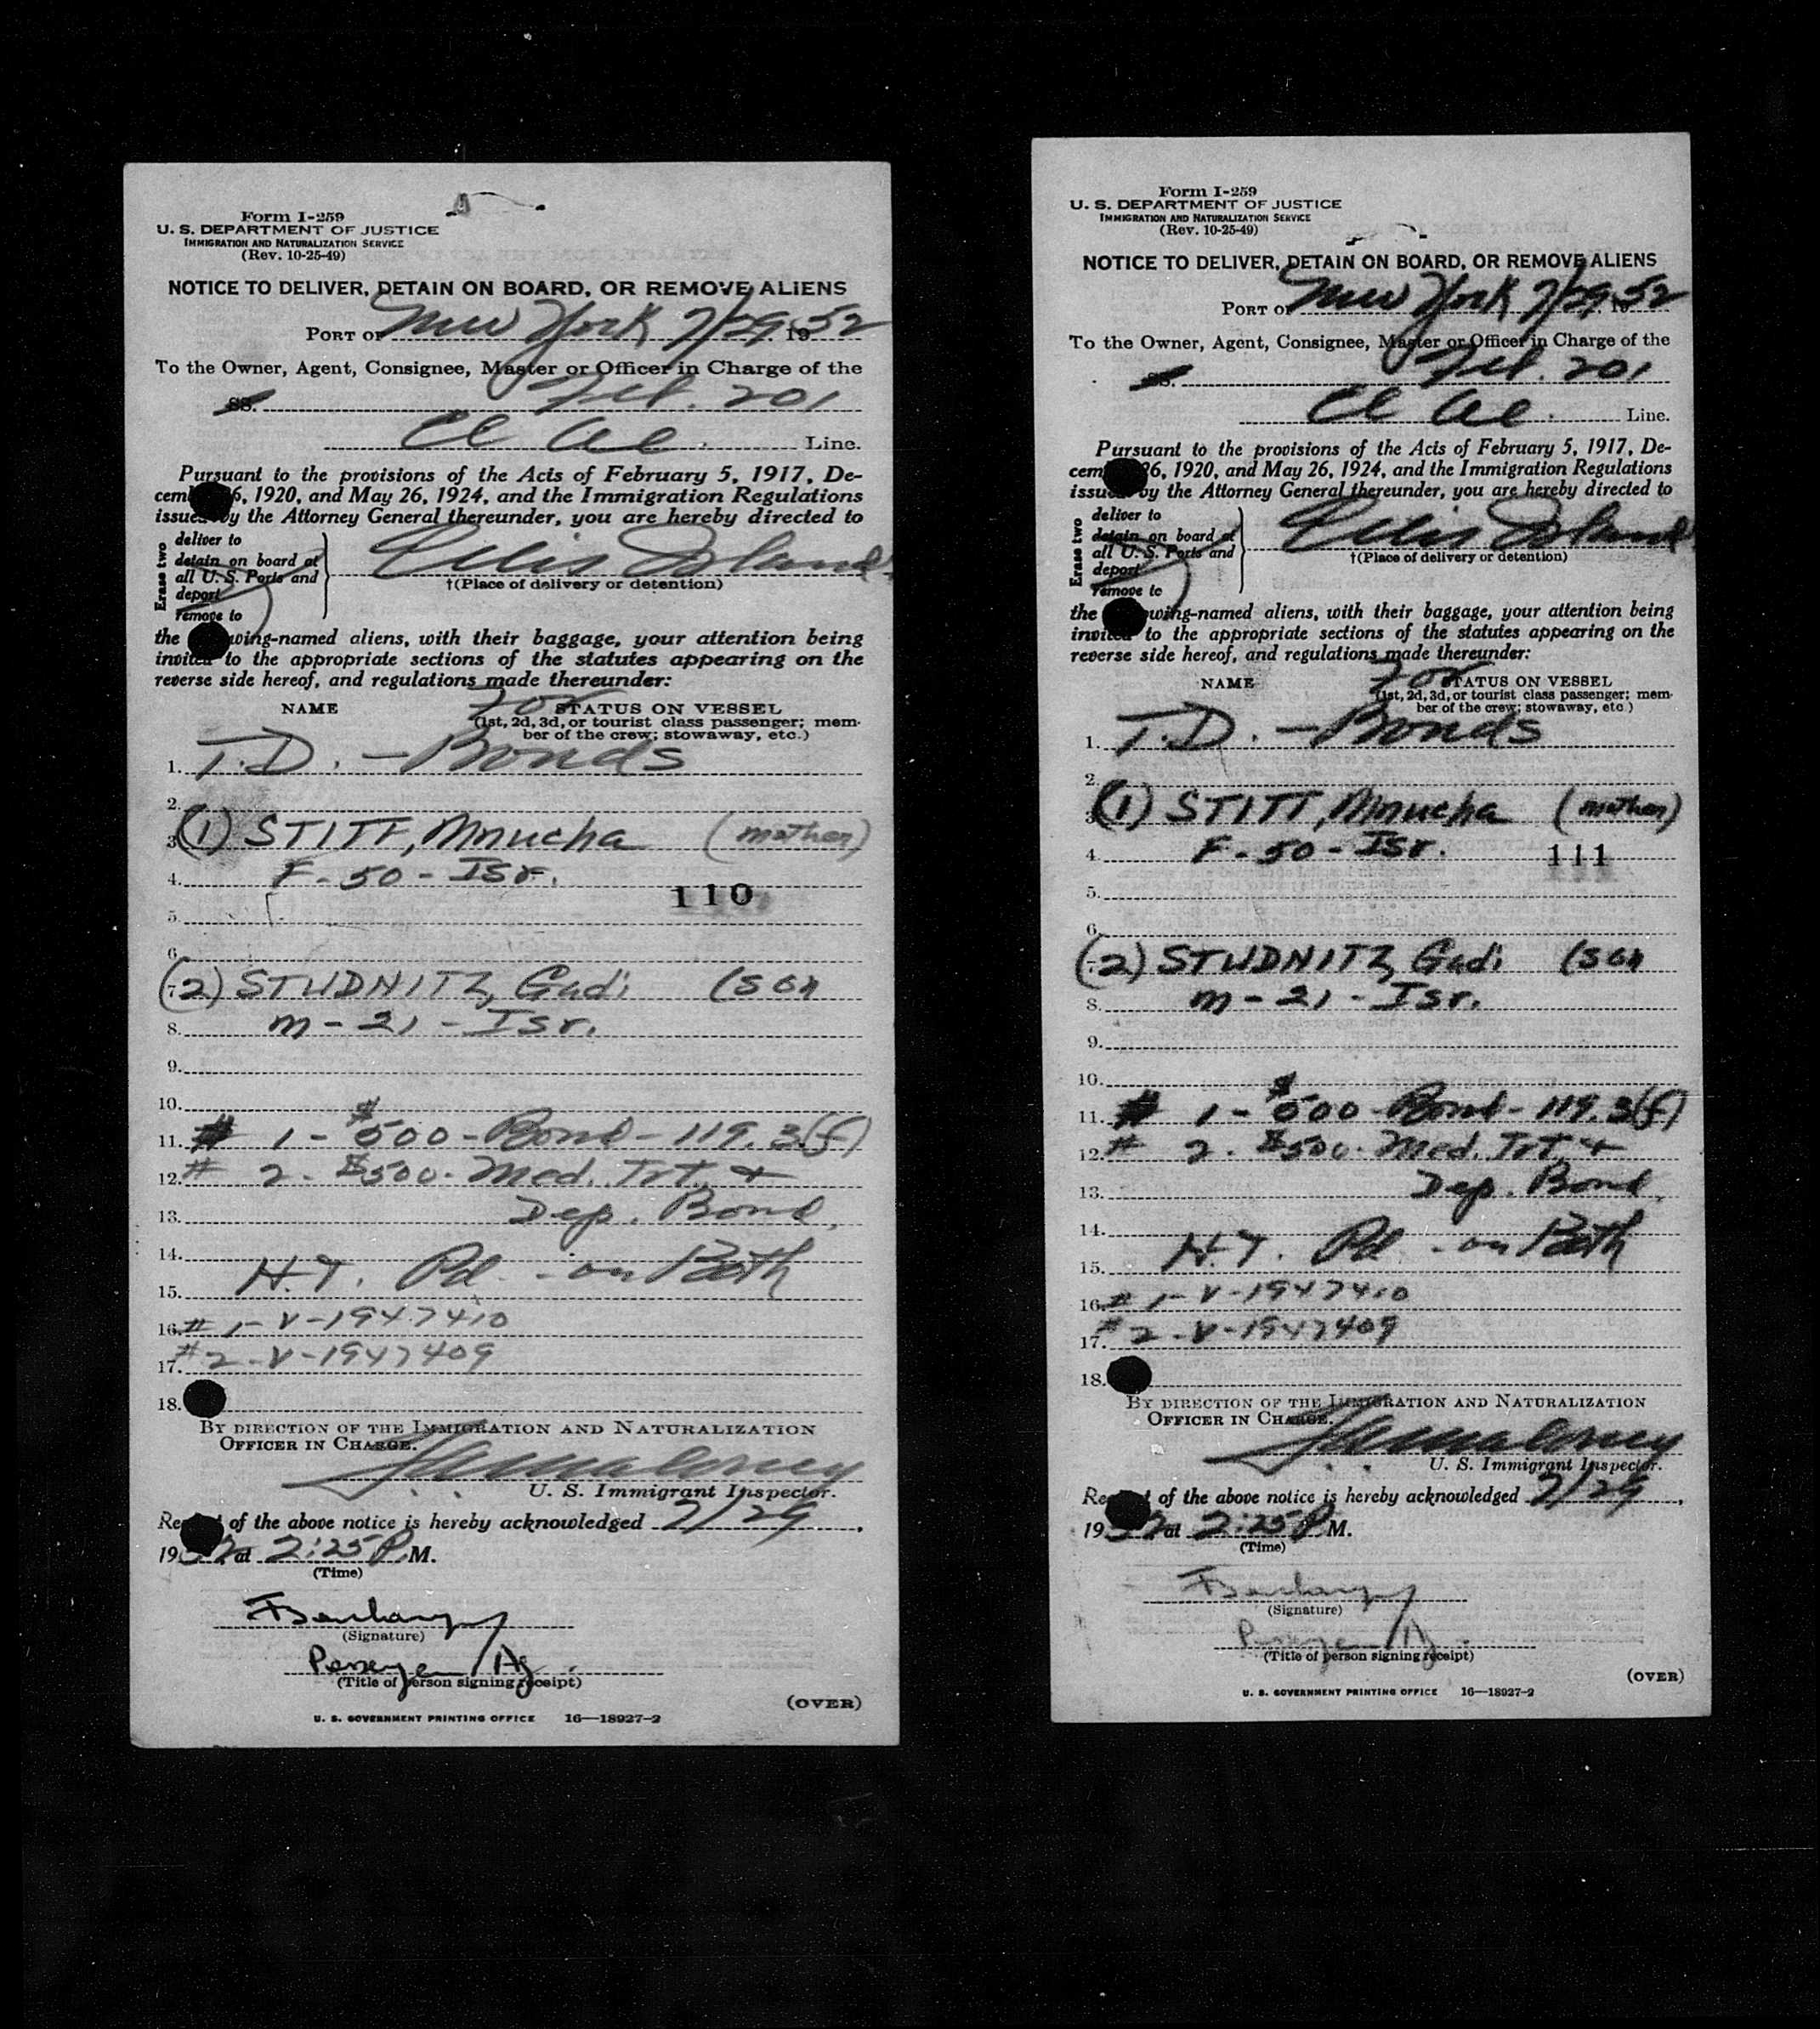 Form I-259
U. S. DEPARTMENT OF JUSTICE
IMMIGRATION AND NATURALIZATION SERVICE
(Rev. 10-25-49)
NOTICE TO DELIVER, DETAIN ON BOARD, OR REMOVE ALIENS
PORT OF New York 7/29, 1952
To the Owner, Agent, Consignee, Master or Officer in Charge of the
SS. 201
El Al Line.
Pursuant to the provisions of the Acts of February 5, 1917, De-
cem 6, 1920, and May 26, 1924, and the Immigration Regulations
issued by the Attorney General thereunder, you are hereby directed to
Erase two
deliver to
detain on board at
all U. S. Ports and
deport
remove to
Ellis Island
†(Place of delivery or detention)
the wing-named aliens, with their baggage, your attention being
invited to the appropriate sections of the statutes appearing on the
reverse side hereof, and regulations made thereunder:
NAME For STATUS ON VESSEL
(1st, 2d, 3d, or tourist class passenger; mem-
ber of the crew; stowaway, etc.)
1. T.D. - Bonds
2.
3. (1) STITT, Mnucha (mother)
4. F - 50 - Isr.
110
5.
6.
7. (2) STUDNITZ, Gadi (son
8. m - 21 - Isr.
9.
10.
11. # 1 - $500 - Bond - 119.3(f)
12. # 2 - $500 - Med. Trt. +
13. Dep. Bond.
14.
15. H.T. Pd - on Both
16. # 1 - V - 1947410
17. # 2 - V - 1947409
18.
BY DIRECTION OF THE IMMIGRATION AND NATURALIZATION
OFFICER IN CHARGE.
U. S. Immigrant Inspector.
Receipt of the above notice is hereby acknowledged 7/29,
1952 at 2:25 P.M.
(Time)
(Signature)
(Title of person signing receipt)
(OVER)
U. S. GOVERNMENT PRINTING OFFICE 16—18927-2
Form I-259
U. S. DEPARTMENT OF JUSTICE
IMMIGRATION AND NATURALIZATION SERVICE
(Rev. 10-25-49)
NOTICE TO DELIVER, DETAIN ON BOARD, OR REMOVE ALIENS
PORT OF New York 7/29, 1952
To the Owner, Agent, Consignee, Master or Officer in Charge of the
SS. 201
El Al Line.
Pursuant to the provisions of the Acts of February 5, 1917, De-
cem 26, 1920, and May 26, 1924, and the Immigration Regulations
issued by the Attorney General thereunder, you are hereby directed to
Erase two
deliver to
detain on board at
all U. S. Ports and
deport
remove to
Ellis Island
†(Place of delivery or detention)
the owing-named aliens, with their baggage, your attention being
invited to the appropriate sections of the statutes appearing on the
reverse side hereof, and regulations made thereunder:
NAME For STATUS ON VESSEL
(1st, 2d, 3d, or tourist class passenger; mem-
ber of the crew; stowaway, etc.)
1. T.D. - Bonds
2.
3. (1) STITT, Mnucha (mother)
4. F - 50 - Isr. 111
5.
6.
7. (2) STUDNITZ, Gadi (son
8. m - 21 - Isr.
9.
10.
11. # 1 - $500 - Bond - 119.3(f)
12. # 2 - $500 - Med. Trt. +
13. Dep. Bond.
14.
15. H.T. Pd - on Both
16. # 1 - V - 1947410
17. # 2 - V - 1947409
18.
BY DIRECTION OF THE IMMIGRATION AND NATURALIZATION
OFFICER IN CHARGE.
U. S. Immigrant Inspector.
Receipt of the above notice is hereby acknowledged 7/29,
1952 at 2:25 P.M.
(Time)
(Signature)
(Title of person signing receipt)
(OVER)
U. S. GOVERNMENT PRINTING OFFICE 16—18927-2